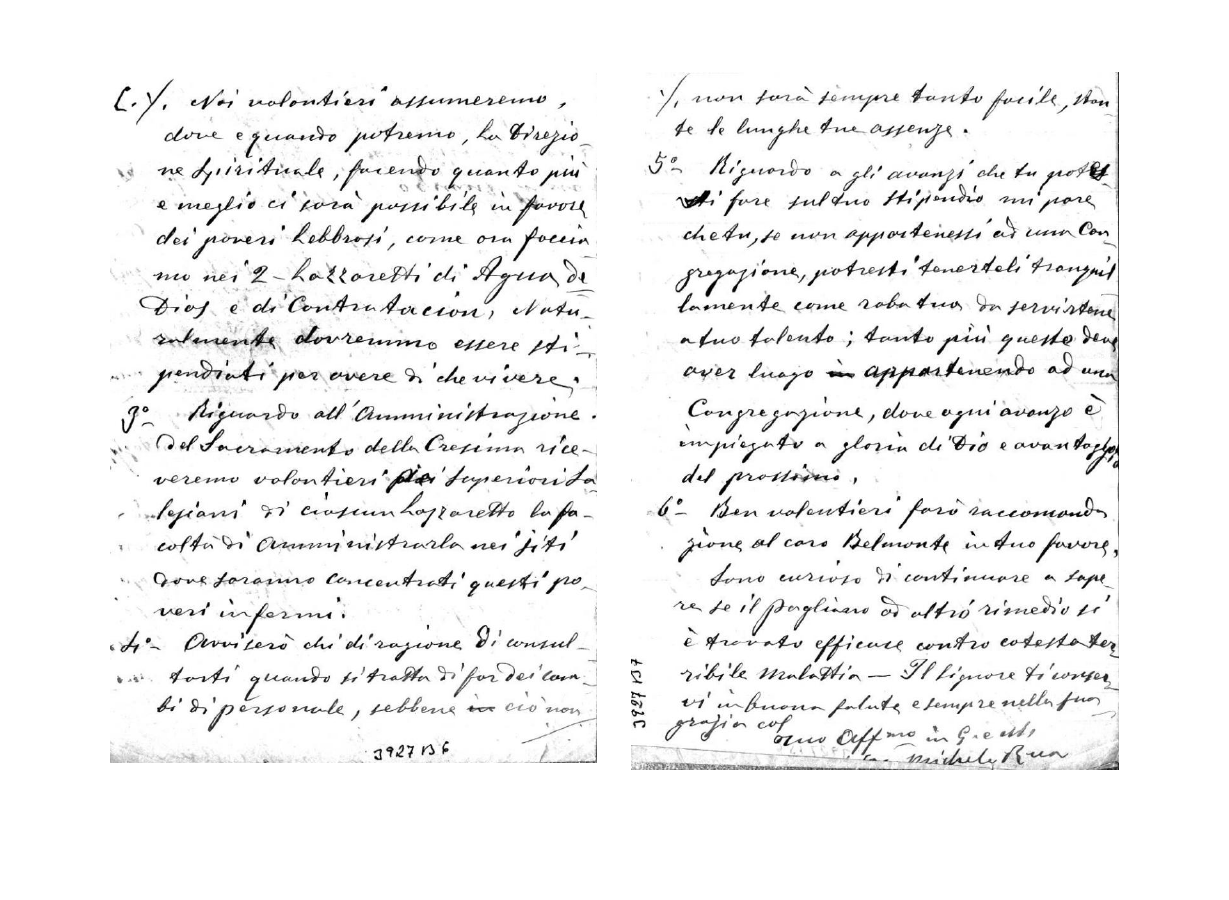 Noi volontieri assumeremo,
dove e quando potremo, la Direzio-
ne Spirituale, facendo quanto più
e meglio ci sarà possibile in favore
dei poveri Lebbrosi, come ora faccia-
mo nei 2 - Lazzaretti di Agua de
Dios e di Contratacion, Natu-
ralmente dovremmo essere sti-
pendiati per avere di che vivere.
3º Riguardo all'Amministrazione
del Sacramento della Cresima rice-
veremo volontieri pei Superiori Sa-
lesiani di ciascun Lazzaretto la fa-
coltà di Amministrarla nei siti
dove saranno concentrati questi po-
veri infermi.
4º - Avviserò chi di ragione di consul-
tarti quando si tratta di far dei cam-
bi di personale, sebbene in ciò non
3927 B6
non sarà sempre tanto facile, stan
te le lunghe tue assenze.
5º - Riguardo a gli avanzi che tu potes
ti fare sul tuo stipendio mi pare
che tu, se non appartenessi ad una Con-
gregazione, potresti tenerteli tranquil
lamente come roba tua da servirtene
a tuo talento; tanto più questo deve
aver luogo in appartenendo ad una
Congregazione, dove ogni avanzo è
impiegato a gloria di Dio e avantaggio
del prossimo.
6º - Ben volentieri farò raccomanda
zione al caro Belmonte in tuo favore.
Sono curioso di continuare a sape-
re se il pagliano od altro rimedio si
è trovato efficace contro cotesta ter-
ribile malattia - Il Signore ti conser-
vi in buona salute e sempre nella sua
grazia col
tuo Affmo in G. e M.
Michele Rua
3927 B7